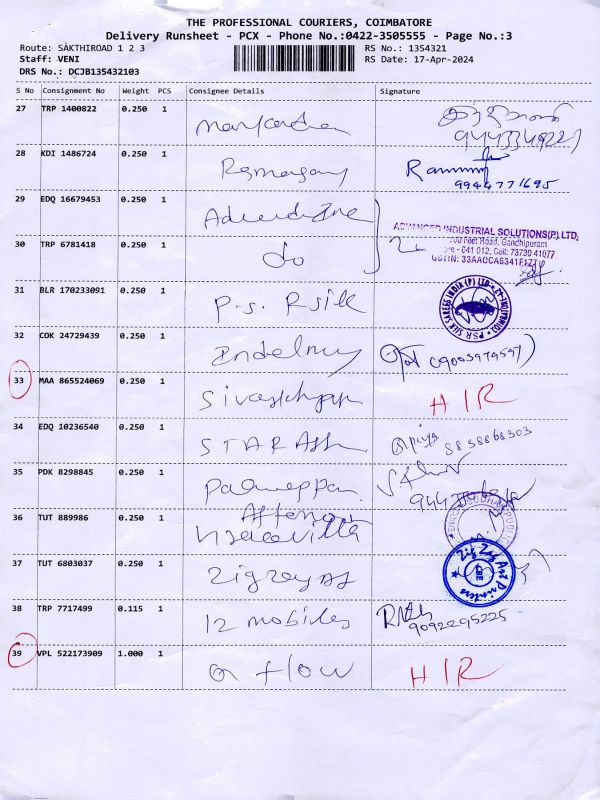 THE PROFESSIONAL COURIERS, COIMBATORE
Delivery Runsheet - PCX - Phone No.:0422-3505555 - Page No.:3
Route: SAKTHIROAD 1 2 3 RS No.: 1354321
Staff: VENI RS Date: 17-Apr-2024
DRS No.: DCJB135432103
S No Consignment No Weight PCS Consignee Details Signature
27 TRP 1400822 0.250 1
28 KDI 1486724 0.250 1 Ramasamy
9944771695
29 EDQ 16679453 0.250 1
ADVANCED INDUSTRIAL SOLUTIONS(P).LTD,
100 Feet Road, Gandhipuram
641 012, Cell: 73730 41077
GSTIN: 33AACCA6341F1Z7
30 TRP 6781418 0.250 1 do
31 BLR 170233091 0.250 1 P.S. R silk
PSR SILK SAREES INDIA (P) LTD
32 COK 24729439 0.250 1 09003979597
33 MAA 865524069 0.250 1 H I R
34 EDQ 10236540 0.250 1 STAR 8838868303
35 PDK 8298845 0.250 1 Palaneppan
36 TUT 889986 0.250 1
37 TUT 6803037 0.250 1
Zig Zag Art Printers
CBE
38 TRP 7717499 0.115 1 12 mobiles
9092295225
39 VPL 522173909 1.000 1 a flow H I R